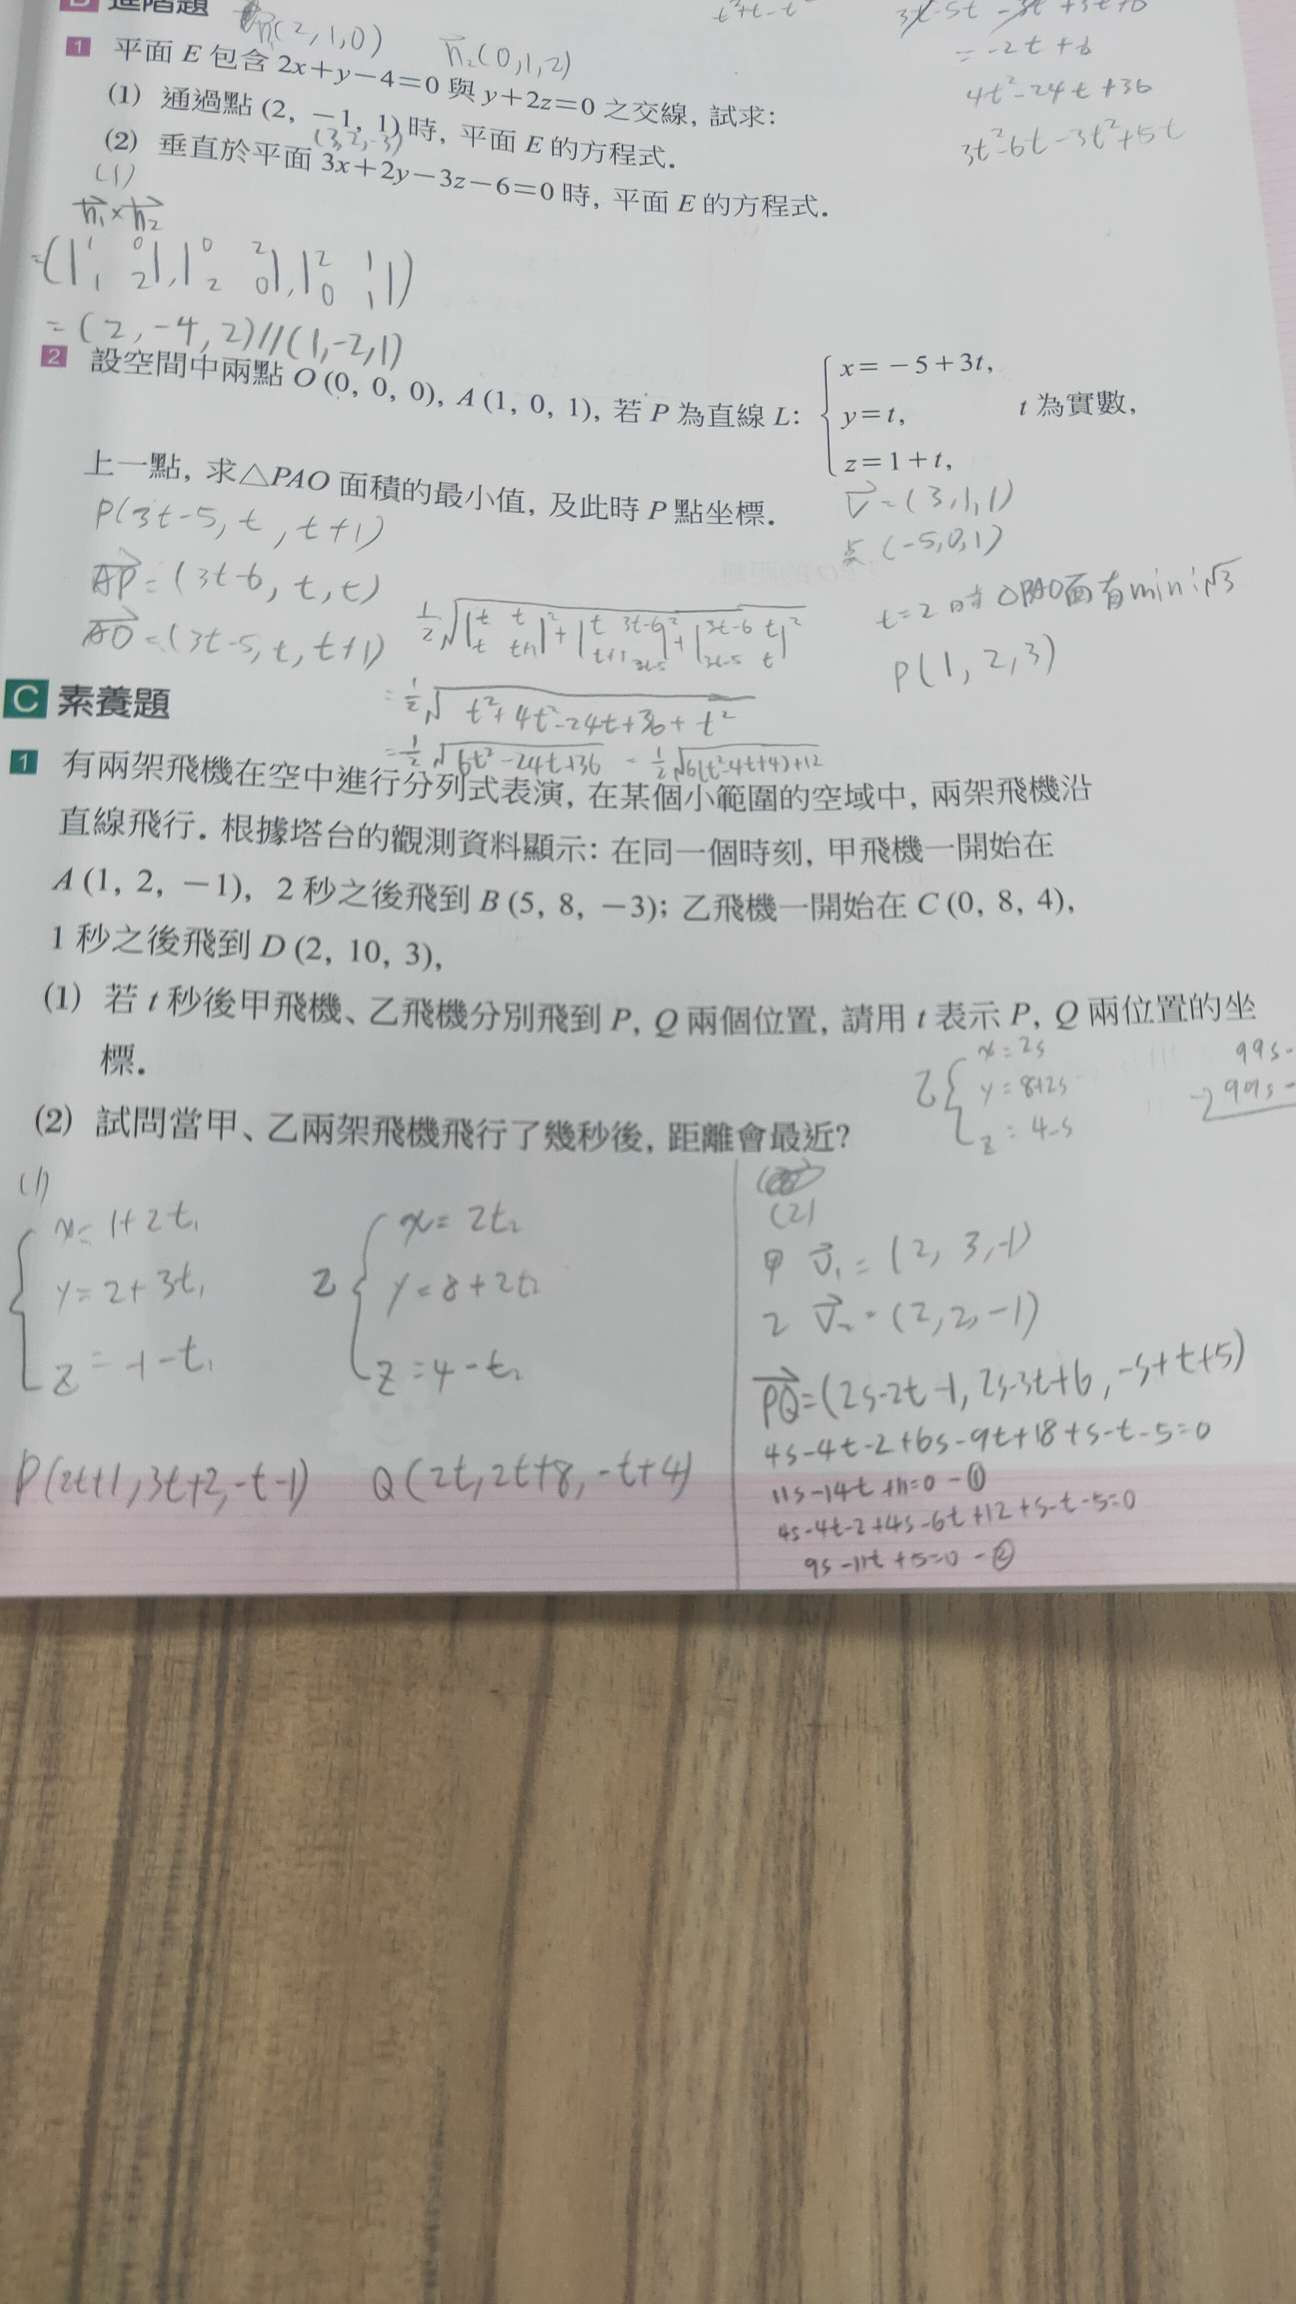 B 進階題
n₁(2,1,0)
n₂(0,1,2)
t²+t-t²
= -2t+6
4t²-24t+36
3t²-6t-3t²+5t
1 平面 E 包含 2x+y-4=0 與 y+2z=0 之交線, 試求:
(1) 通過點 (2, -1, 1) 時, 平面 E 的方程式.
(3,2,-3)
(2) 垂直於平面 3x+2y-3z-6=0 時, 平面 E 的方程式.
(1)
n₁×n₂
=(|1 0|,|0 2|,|2 1|)
1 2 2 0 0 1
=(2,-4,2)//(1,-2,1)
2 設空間中兩點 O (0, 0, 0), A (1, 0, 1), 若 P 為直線 L: { x=-5+3t,
y=t,
z=1+t,
t 為實數,
上一點, 求△PAO 面積的最小值, 及此時 P 點坐標.
P(3t-5, t, t+1)
AP=(3t-6, t, t)
AO=(3t-5, t, t+1)
V=(3,1,1)
(-5,0,1)
1/2√(|t t|²+|t 3t-6|²+|3t-6 t|²)
t t+1 t+1 3t-5 3t-5 t
=1/2√(t²+4t²-24t+36+t²)
=1/2√(6t²-24t+36) = 1/2√(6(t²-4t+4)+12)
t=2時△PAO面有min:√3
P(1,2,3)
C 素養題
1 有兩架飛機在空中進行分列式表演, 在某個小範圍的空域中, 兩架飛機沿
直線飛行. 根據塔台的觀測資料顯示: 在同一個時刻, 甲飛機一開始在
A (1, 2, -1), 2 秒之後飛到 B (5, 8, -3); 乙飛機一開始在 C (0, 8, 4),
1 秒之後飛到 D (2, 10, 3),
(1) 若 t 秒後甲飛機、乙飛機分別飛到 P, Q 兩個位置, 請用 t 表示 P, Q 兩位置的坐
標.
乙{ x=2s
y=8+2s
z=4-s
99s-
(2) 試問當甲、乙兩架飛機飛行了幾秒後, 距離會最近?
(1)
{ x=1+2t₁
y=2+3t₁
z=-1-t₁
乙{ x=2t₂
y=8+2t₂
z=4-t₂
P(2t+1,3t+2,-t-1)
Q(2t,2t+8,-t+4)
(2)
甲 V₁=(2,3,-1)
乙 V₂=(2,2,-1)
PQ=(2s-2t-1,2s-3t+6,-s+t+5)
4s-4t-2+6s-9t+18+s-t-5=0
11s-14t+11=0 -①
4s-4t-2+4s-6t+12+s-t-5=0
9s-11t+5=0 -②